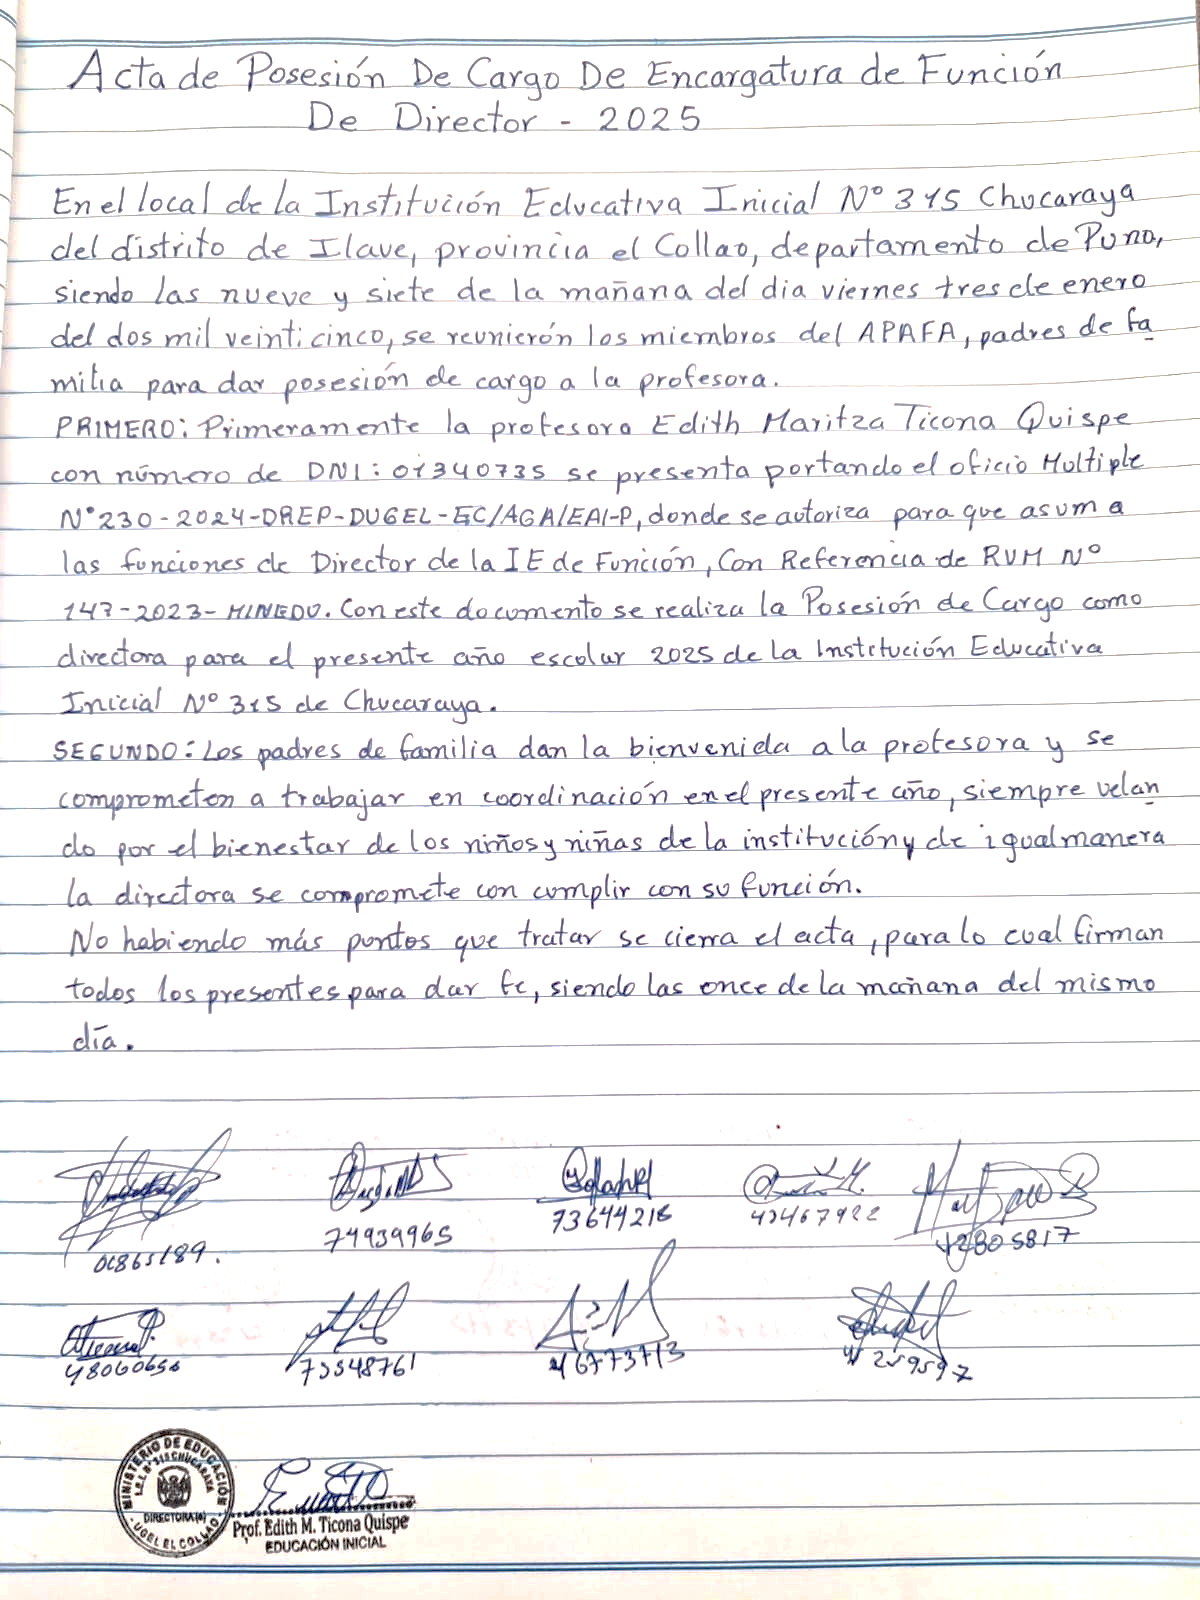 Acta de Posesión De Cargo De Encargatura de Función
De Director - 2025
En el local de la Institución Educativa Inicial N° 315 Chucaraya
del distrito de Ilave, provincia el Collao, departamento de Puno,
siendo las nueve y siete de la mañana del dia viernes tres de enero
del dos mil veinticinco, se reunierón los miembros del APAFA, padres de fa
milia para dar posesión de cargo a la profesora.
PRIMERO: Primeramente la profesora Edith Maritza Ticona Quispe
con número de DNI: 01340735 se presenta portando el oficio Multiple
N° 230-2024-DREP-DUGEL-EC/AGA/EAI-P, donde se autoriza para que asuma
las funciones de Director de la IE de Función, Con Referencia de RVM N°
147-2023-MINEDU. Con este documento se realiza la Posesión de Cargo como
directora para el presente año escolar 2025 de la Institución Educativa
Inicial N° 315 de Chucaraya.
SEGUNDO: Los padres de familia dan la bienvenida a la profesora y se
comprometen a trabajar en coordinación en el presente año, siempre velan
do por el bienestar de los niños y niñas de la institución y de igual manera
la directora se compromete con cumplir con su función.
No habiendo más puntos que tratar se cierra el acta, para lo cual firman
todos los presentes para dar fe, siendo las once de la mañana del mismo
día.
01865189. 74939965 73644218 43467922 42805817
48060656 73548761 46773713 41259597
MINISTERIO DE EDUCACIÓN
I.E.I. N° 315 CHUCARAYA
DIRECTORA(A)
UGEL EL COLLAO
Prof. Edith M. Ticona Quispe
EDUCACIÓN INICIAL